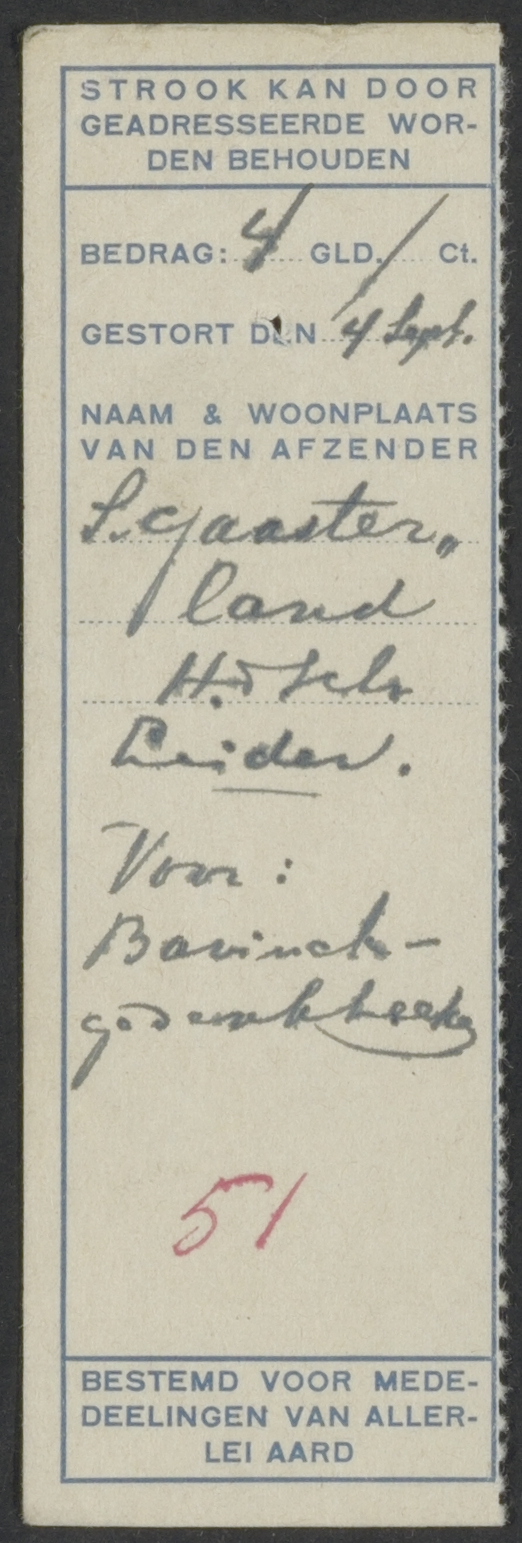 STROOK KAN DOOR
GEADRESSEERDE WOR-
DEN BEHOUDEN
BEDRAG: 4 GLD. / Ct.
GESTORT DEN 4 Sept.
NAAM & WOONPLAATS
VAN DEN AFZENDER
S. Gaaster„
land
Leiden.
Voor:
Bavinck-
gedenkboekje
51
BESTEMD VOOR MEDE-
DEELINGEN VAN ALLER-
LEI AARD